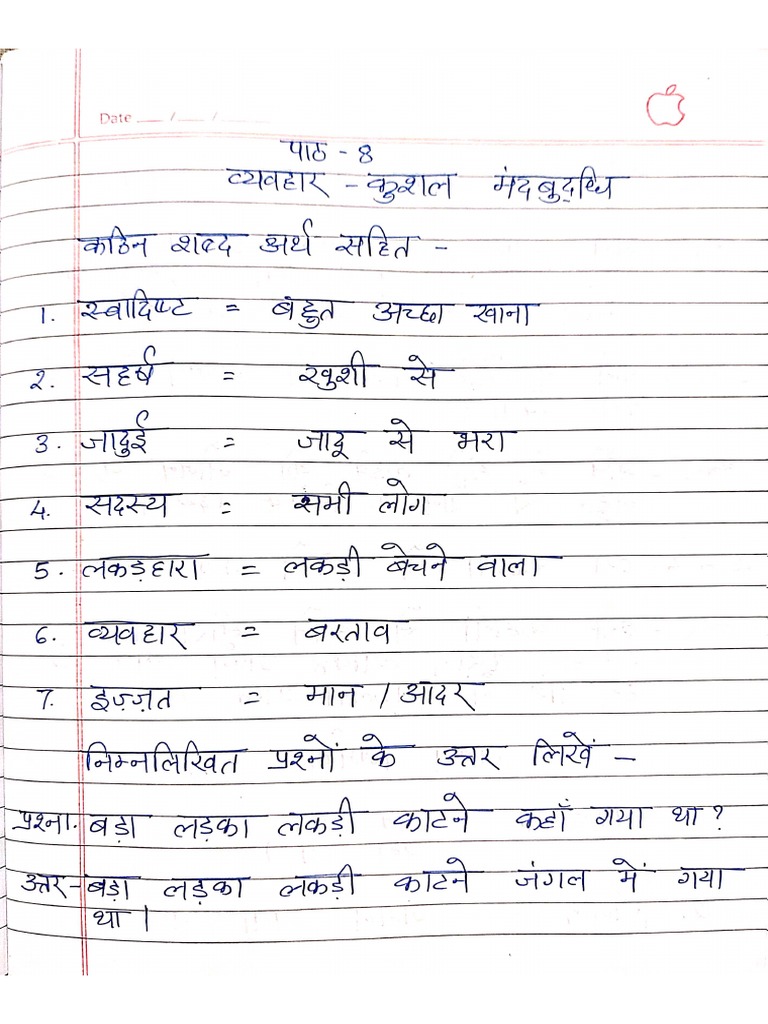 Date ___/___/______
पाठ - 8
व्यवहार - कुशल मंदबुद्धि
कठिन शब्द अर्थ सहित -
1. स्वादिष्ट = बहुत अच्छा खाना
2. सहर्ष = खुशी से
3. जादुई = जादू से भरा
4. सदस्य = सभी लोग
5. लकड़हारा = लकड़ी बेचने वाला
6. व्यवहार = बरताव
7. इज़्ज़त = मान / आदर
निम्नलिखित प्रश्नों के उत्तर लिखें -
प्रश्न1. बड़ा लड़का लकड़ी काटने कहाँ गया था?
उत्तर - बड़ा लड़का लकड़ी काटने जंगल में गया
था।